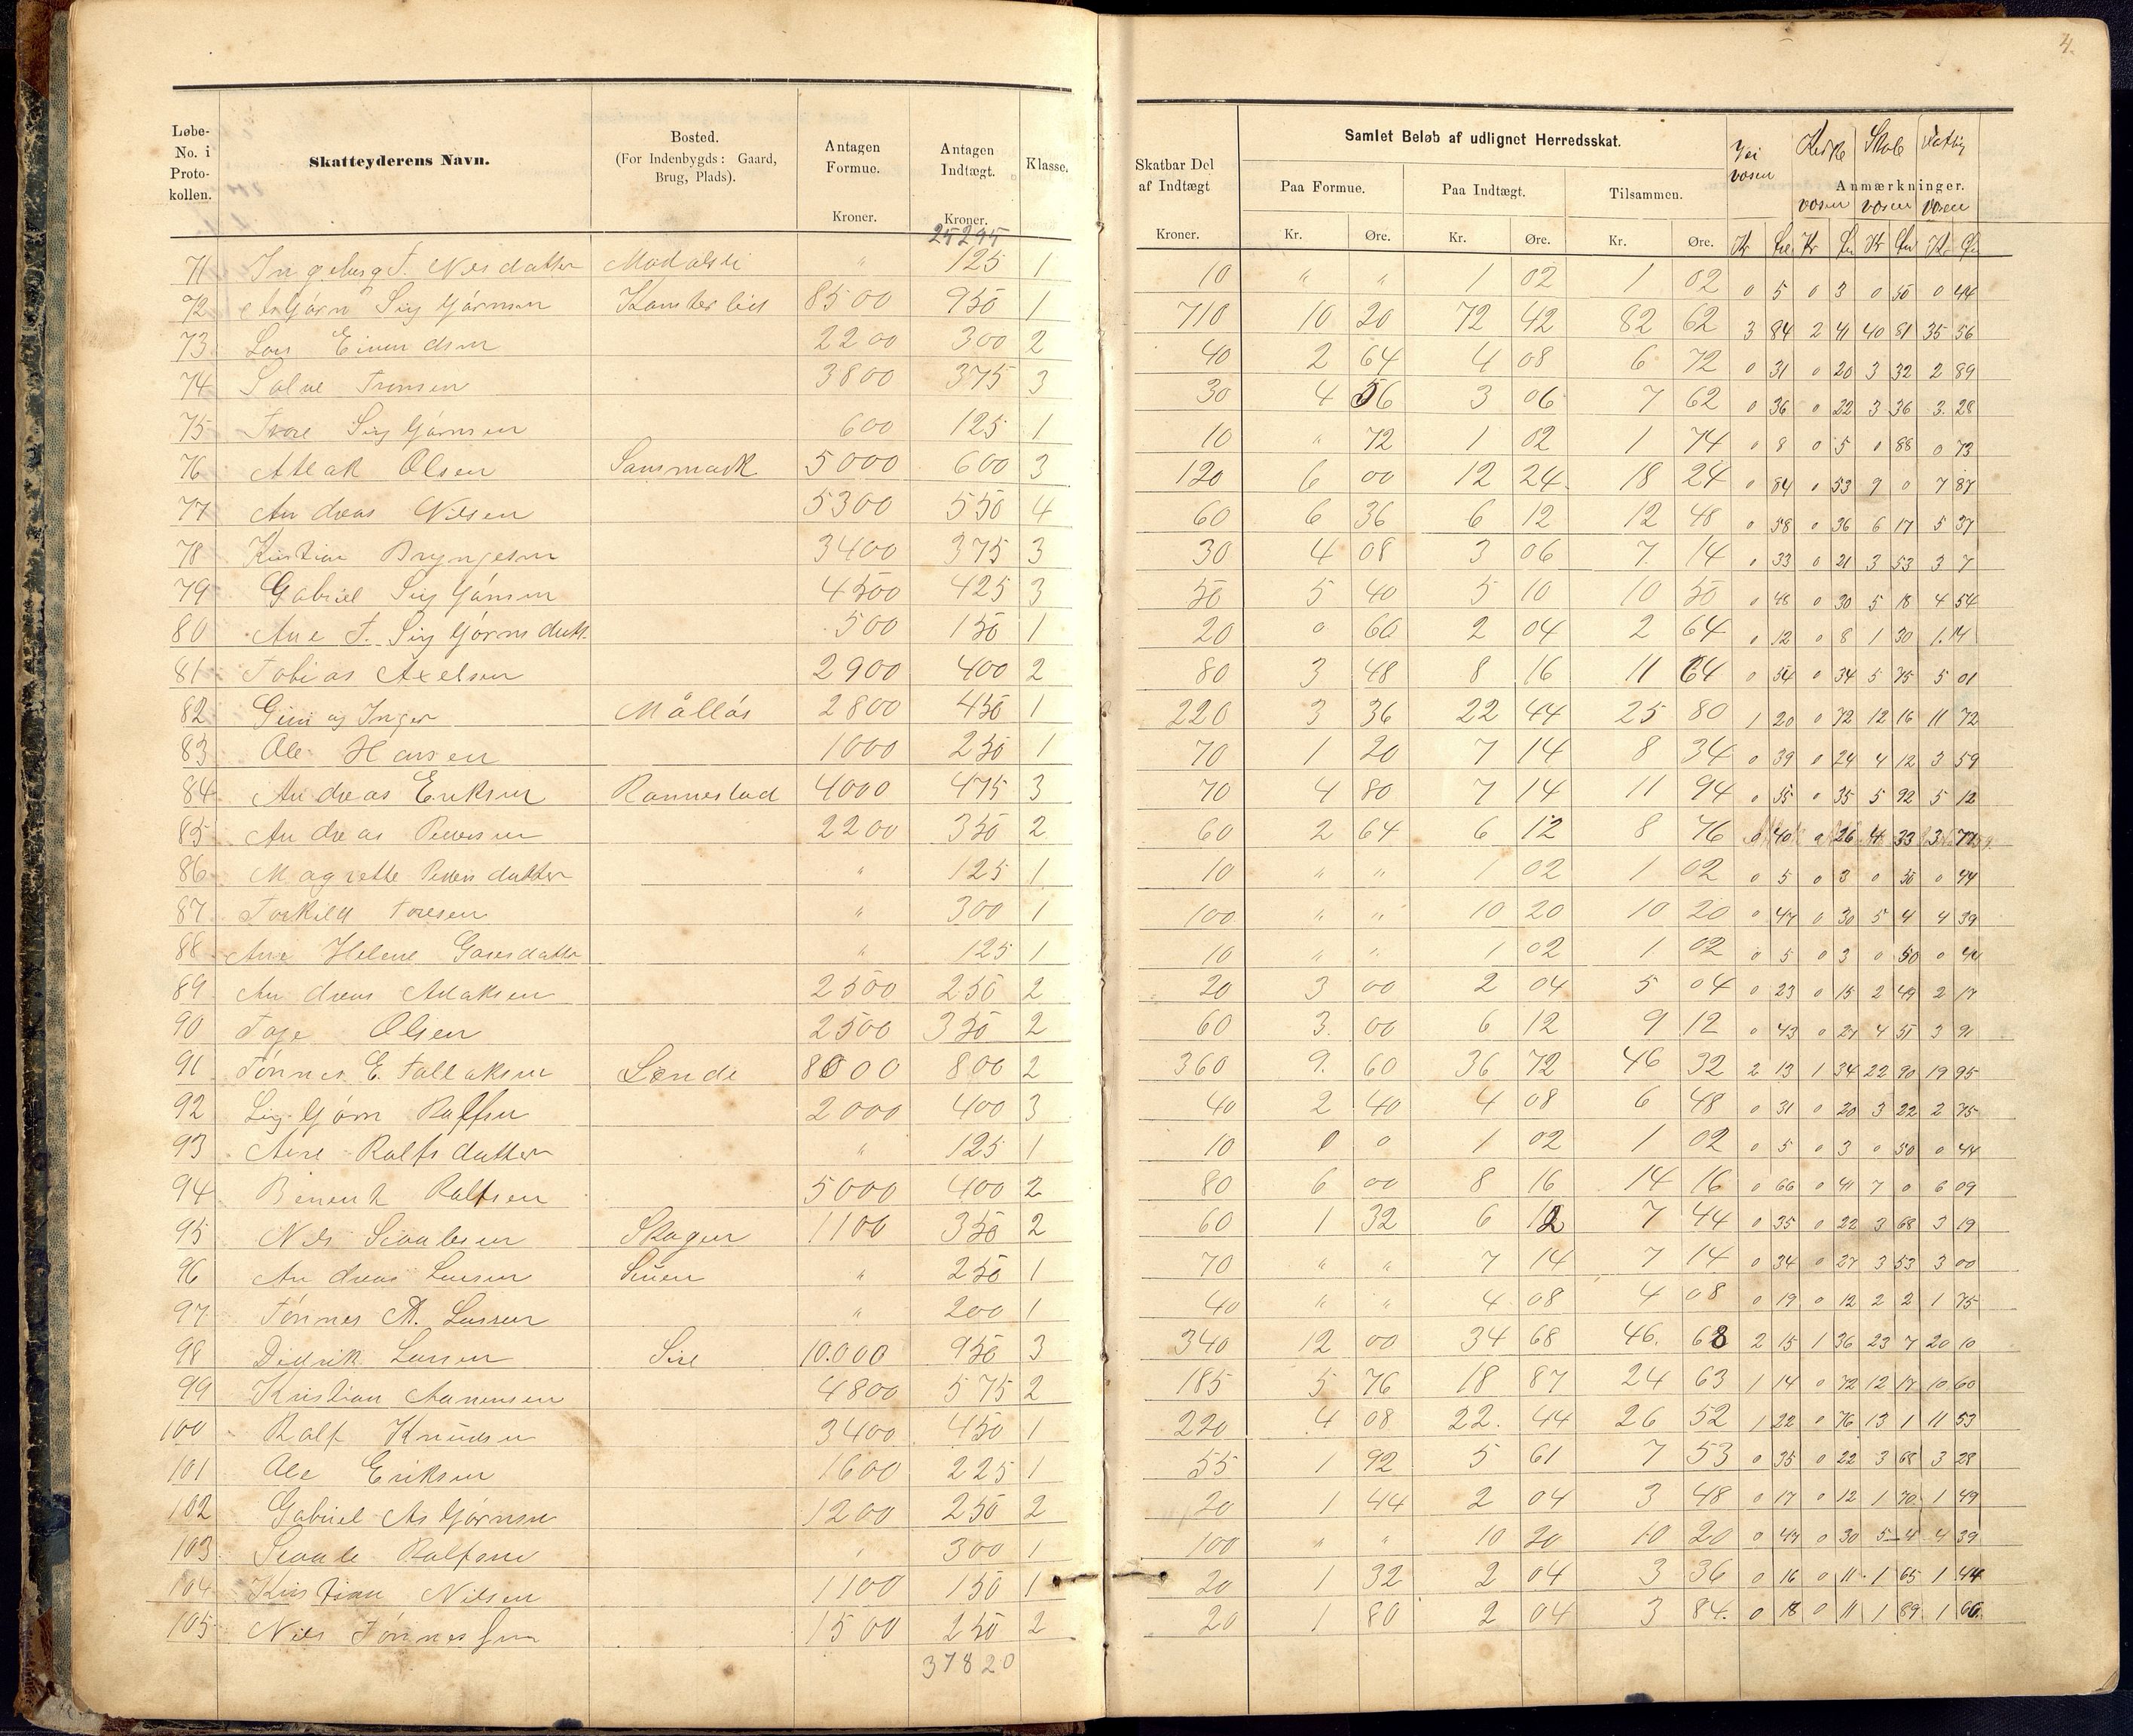 4.
Løbe-No. i Proto-kollen. Skatteyderens Navn. Bosted. (For Indenbygds: Gaard, Brug, Plads). Antagen Formue. Kroner. Antagen Indtægt. Kroner. Klasse. Skatbar Del af Indtægt Kroner. Samlet Beløb af udlignet Herredsskat. Paa Formue. Kr. Øre. Paa Indtægt. Kr. Øre. Tilsammen. Kr. Øre. Anmærkninger. Vei vesen Kirke vesen Skole vesen Fattig vesen
25295
71 Ingeborg T. Nilsdatter " 125 1 10 " " 1 02 1 02 0 5 0 3 0 50 0 44
72 Asbjörn Sigbjörnsen 8500 950 1 710 10 20 72 42 82 62 3 84 2 41 40 81 35 56
73 Lars Eivindsen 2200 300 2 40 2 64 4 08 6 72 0 31 0 20 3 32 2 89
74 Salve 3800 375 3 30 4 56 3 06 7 62 0 36 0 22 3 36 3 28
75 Tore Sigbjörnsen 600 125 1 10 " 72 1 02 1 74 0 8 0 5 0 88 0 73
76 Atlak Olsen Sansmark 5000 600 3 120 6 00 12 24 18 24 0 84 0 53 9 0 7 87
77 Andreas Nilsen 5300 550 4 60 6 36 6 12 12 48 0 58 0 36 6 17 5 37
78 Kristian Bryngesen 3400 375 3 30 4 08 3 06 7 14 0 33 0 21 3 53 3 7
79 Gabriel Sigbjörnsen 4500 425 3 50 5 40 5 10 10 50 0 48 0 30 5 18 4 54
80 Ane T. Sigbjörnsdatt. 500 150 1 20 0 60 2 04 2 64 0 12 0 8 1 30 1.14
81 Tobias Axelsen 2900 400 2 80 3 48 8 16 11 64 0 54 0 34 5 75 5 01
82 Guri og Inger Mållås 2800 450 1 220 3 36 22 44 25 80 1 20 0 72 12 16 11 72
83 Ole Hansen 1000 250 1 70 1 20 7 14 8 34 0 39 0 24 4 12 3 59
84 Andreas Eriksen Rannestad 4000 475 3 70 4 80 7 14 11 94 0 55 0 35 5 92 5 12
85 Andreas Pedersen 2200 350 2 60 2 64 6 12 8 76 0 40 0 26 4 33 3 77
86 Magrette Pedersdatter " 125 1 10 " " 1 02 1 02 0 5 0 3 0 50 0 44
87 Torkild Toresen " 300 1 100 " " 10 20 10 20 0 47 0 30 5 4 4 39
88 Ane Helene " 125 1 10 " " 1 02 1 02 0 5 0 3 0 50 0 44
89 Andreas Atlaksen 2500 250 2 20 3 00 2 04 5 04 0 23 0 15 2 49 2 17
90 Tage Olsen 2500 350 2 60 3 00 6 12 9 12 0 43 0 27 4 51 3 91
91 Tönnes E. Tallaksen Lende 8000 800 2 360 9 60 36 72 46 32 2 13 1 34 22 90 19 95
92 Sigbjörn Ralfsen 2000 400 3 40 2 40 4 08 6 48 0 31 0 20 3 22 2 75
93 Ane Ralfsdatter " 125 1 10 0 0 1 02 1 02 0 5 0 3 0 50 0 44
94 Ralfsen 5000 400 2 80 6 00 8 16 14 16 0 66 0 41 7 0 6 09
95 Nils Skagen 1100 350 2 60 1 32 6 12 7 44 0 35 0 22 3 68 3 19
96 Andreas Larsen " 250 1 70 " " 7 14 7 14 0 34 0 27 3 53 3 00
97 Tönnes A. Larsen " 200 1 40 " " 4 08 4 08 0 19 0 12 2 2 1 75
98 Didrik Larsen 10.000 950 3 340 12 00 34 68 46 68 2 15 1 36 23 7 20 10
99 Kristian Aanensen 4800 575 2 185 5 76 18 87 24 63 1 14 0 72 12 17 10 60
100 Ralf Knudsen 3400 450 1 220 4 08 22 44 26 52 1 22 0 76 13 1 11 53
101 Ole Eriksen 1600 225 1 55 1 92 5 61 7 53 0 35 0 22 3 68 3 28
102 Gabriel Asbjörnsen 1200 250 2 20 1 44 2 04 3 48 0 17 0 12 1 70 1 49
103 Ralfsen " 300 1 100 " " 10 20 10 20 0 47 0 30 5 4 4 39
104 Kristian Nilsen 1100 150 1 20 1 32 2 04 3 36 0 16 0 11 1 65 1 44
105 Nils Tönnessen 1500 250 2 20 1 80 2 04 3 84 0 18 0 11 1 89 1 66
37820